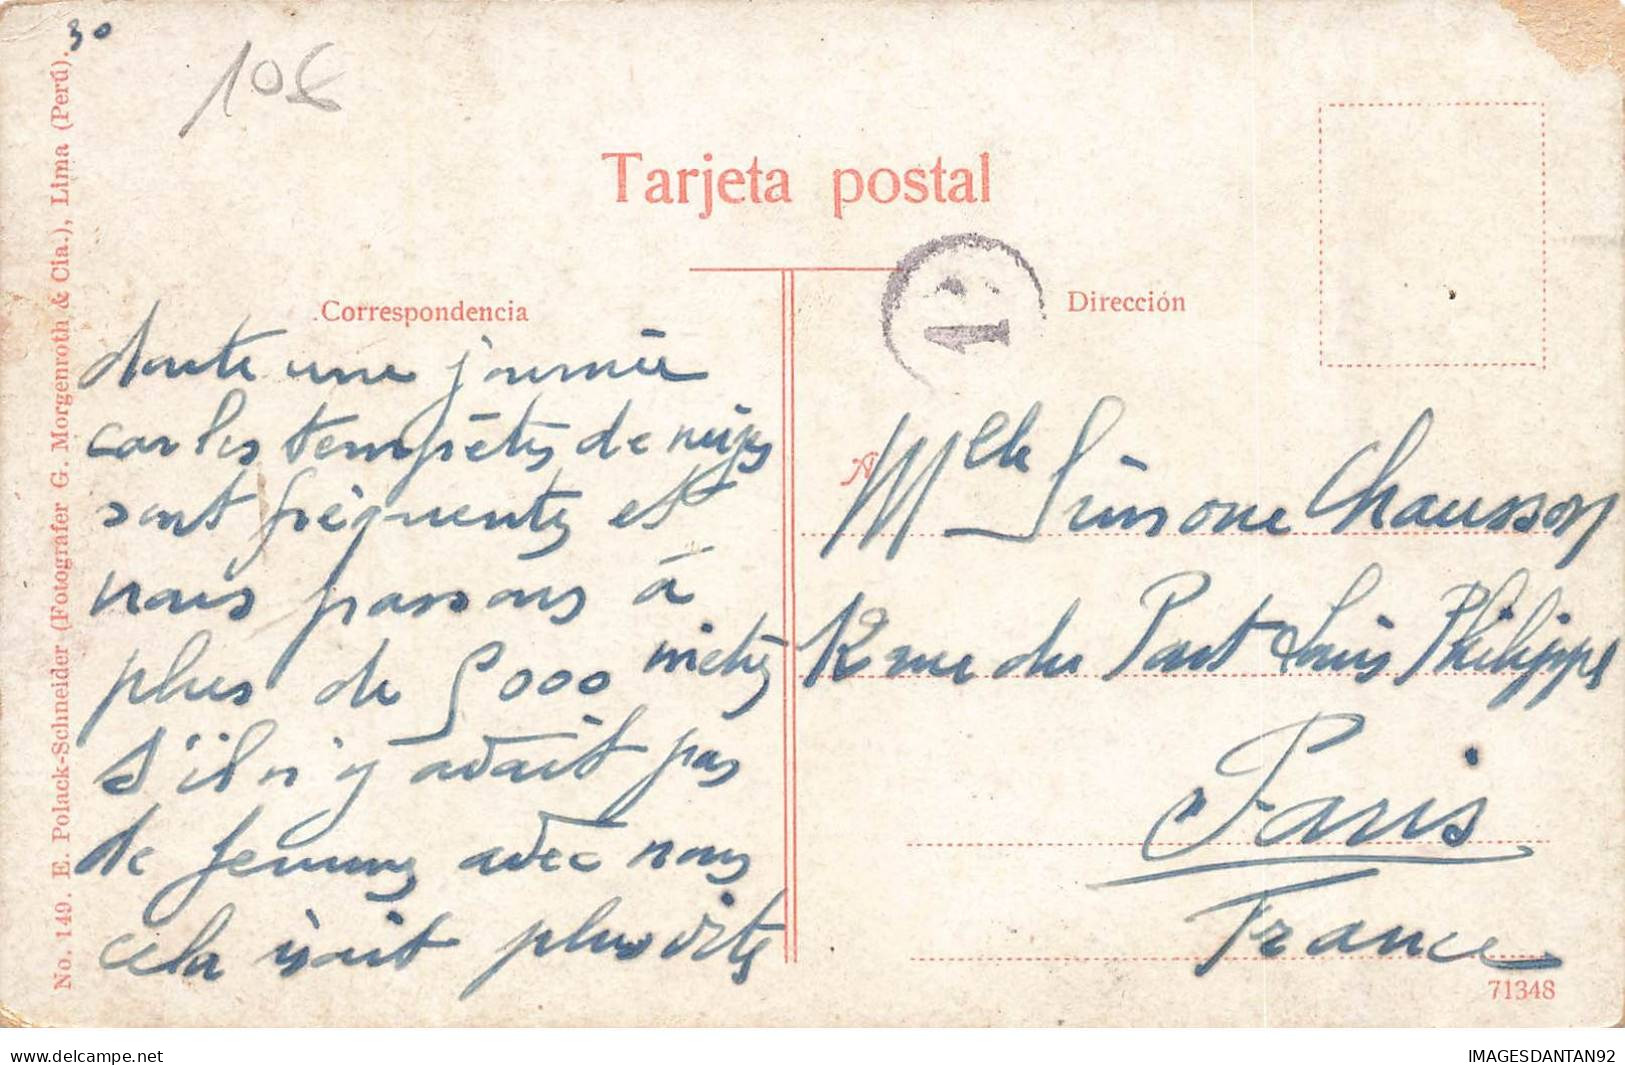 30
10€
Tarjeta postal
Correspondencia
Dirección
12
doute une journée
car les tempêtes de neiges
sont fréquentes et
nous passons à
plus de 5000 mètres
s'il n'y avait pas
de femmes avec nous
cela irait plus vite
A
Mlle Simone Chausson
12 rue du Pont Louis Philippe
Paris
France
71348
No. 149. E. Polack-Schneider (Fotografer G. Morgenroth & Cia.), Lima (Perú).
www.delcampe.net
IMAGESDANTAN92